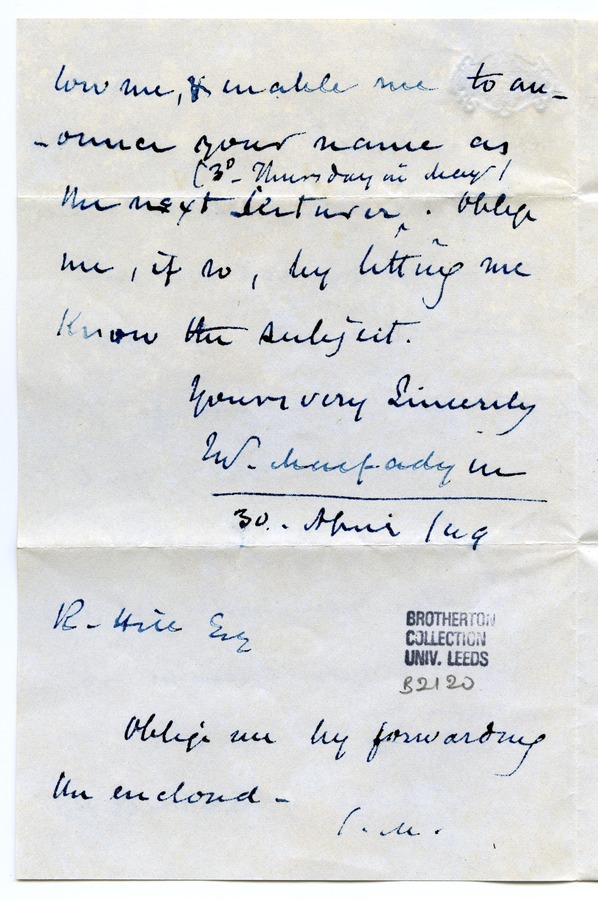 low me, & enable me to an-
-ounce your name as
(3d. Thursday in May)
the next Lecturer. Oblige
me, if so, by letting me
know the subject.
Yours very Sincerely
W. Macfadyen
30. April /49
R. Hill Esq
BROTHERTON
COLLECTION
UNIV. LEEDS
B2120
Oblige me by forwarding
the enclosed -